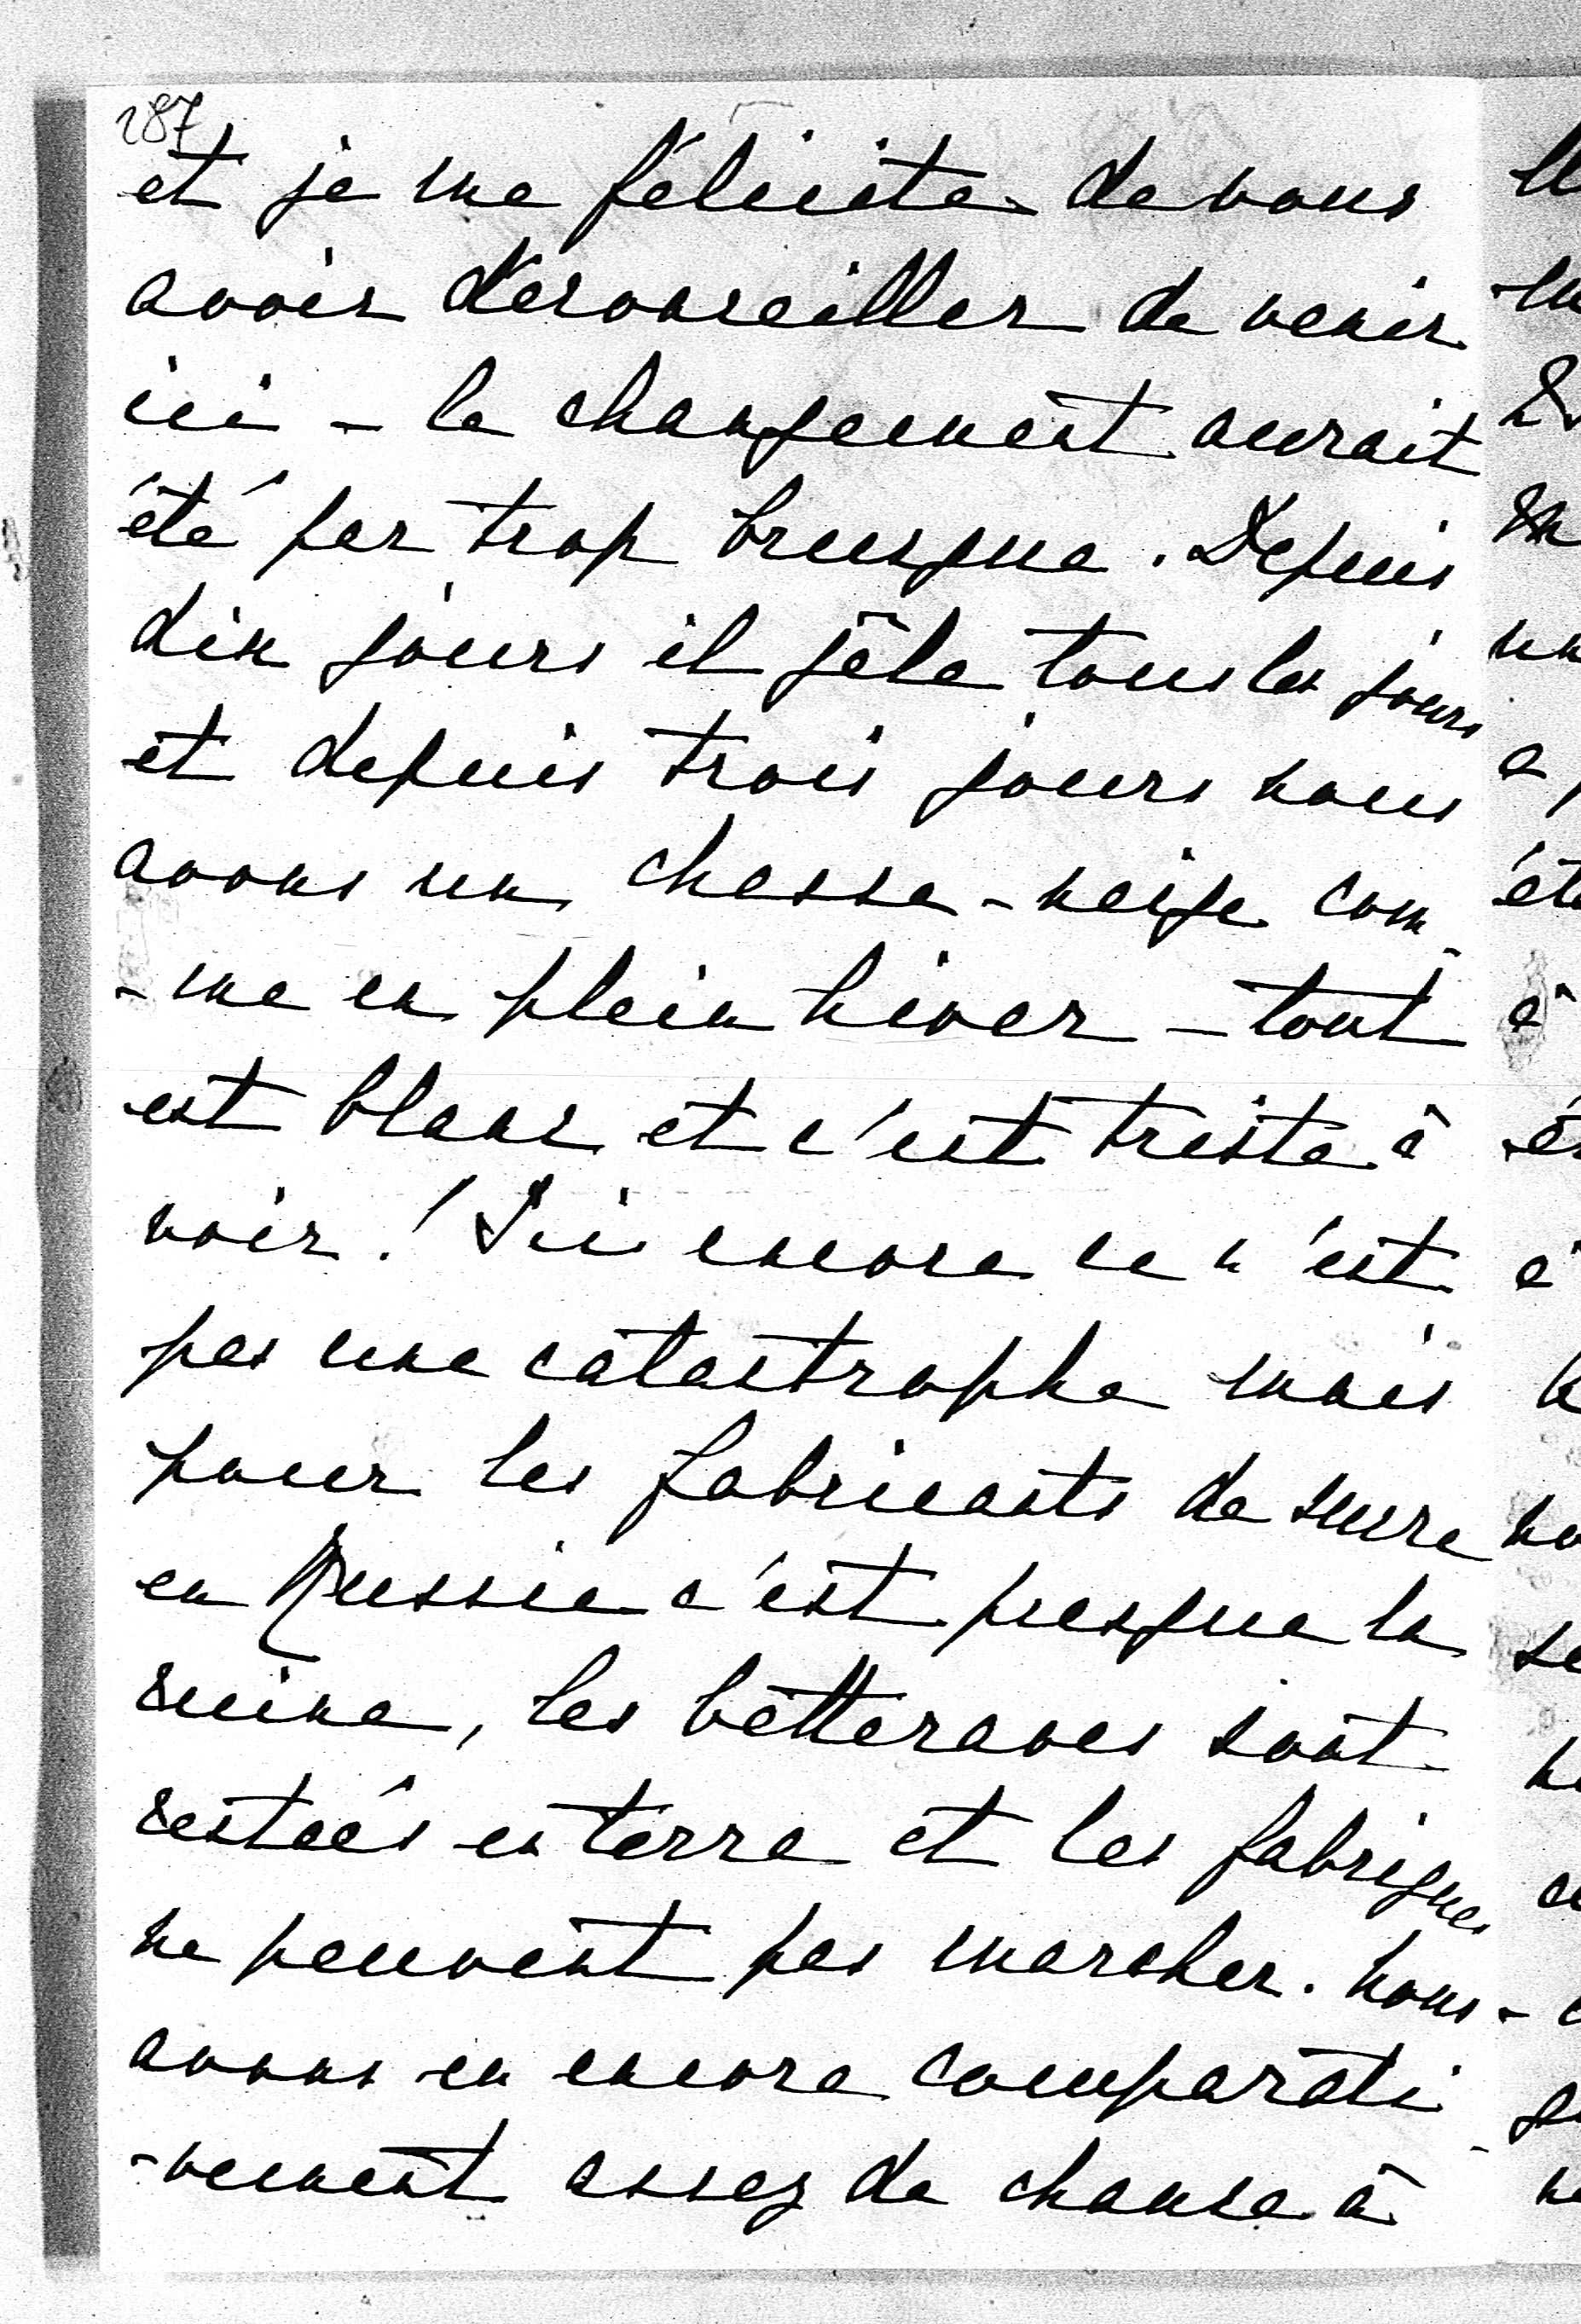 287
et je me félicite de vous
avoir déconseiller de venir
ici - le changement aurait
été par trop brusque. Depuis
dix jours il gêle tous les jours
et depuis trois jours nous
avons un chasse-neige com-
-me en plein hiver - tout
est blanc et c'est triste à
voir! Ici encore ce n'est
pas une catastrophe mais
pour les fabricants de sucre
en Russie c'est presque la
ruine, les betteraves sont
restées en terre et les fabriques
ne peuvent pas marcher. Nous
avons eu encore comparati-
-vement assez de chance à